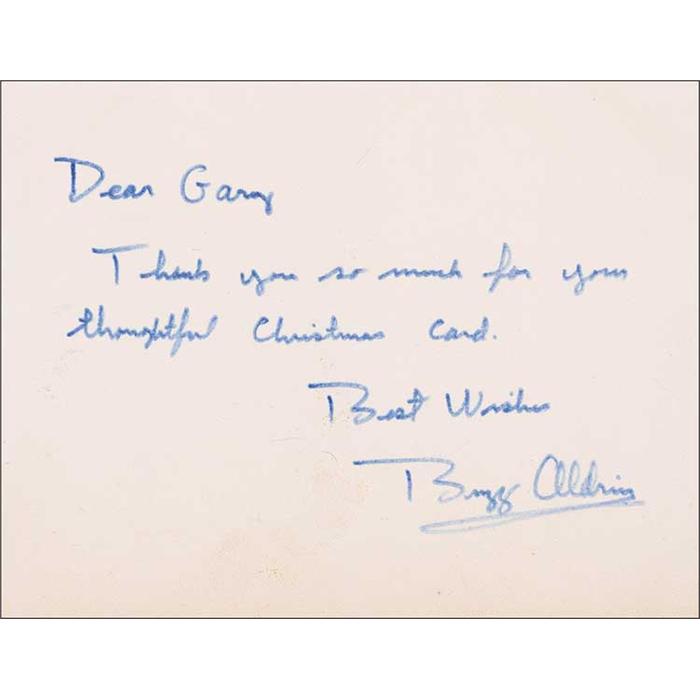 Dear Gary
Thank you so much for your
thoughtful Christmas card.
Best Wishes
Buzz Aldrin